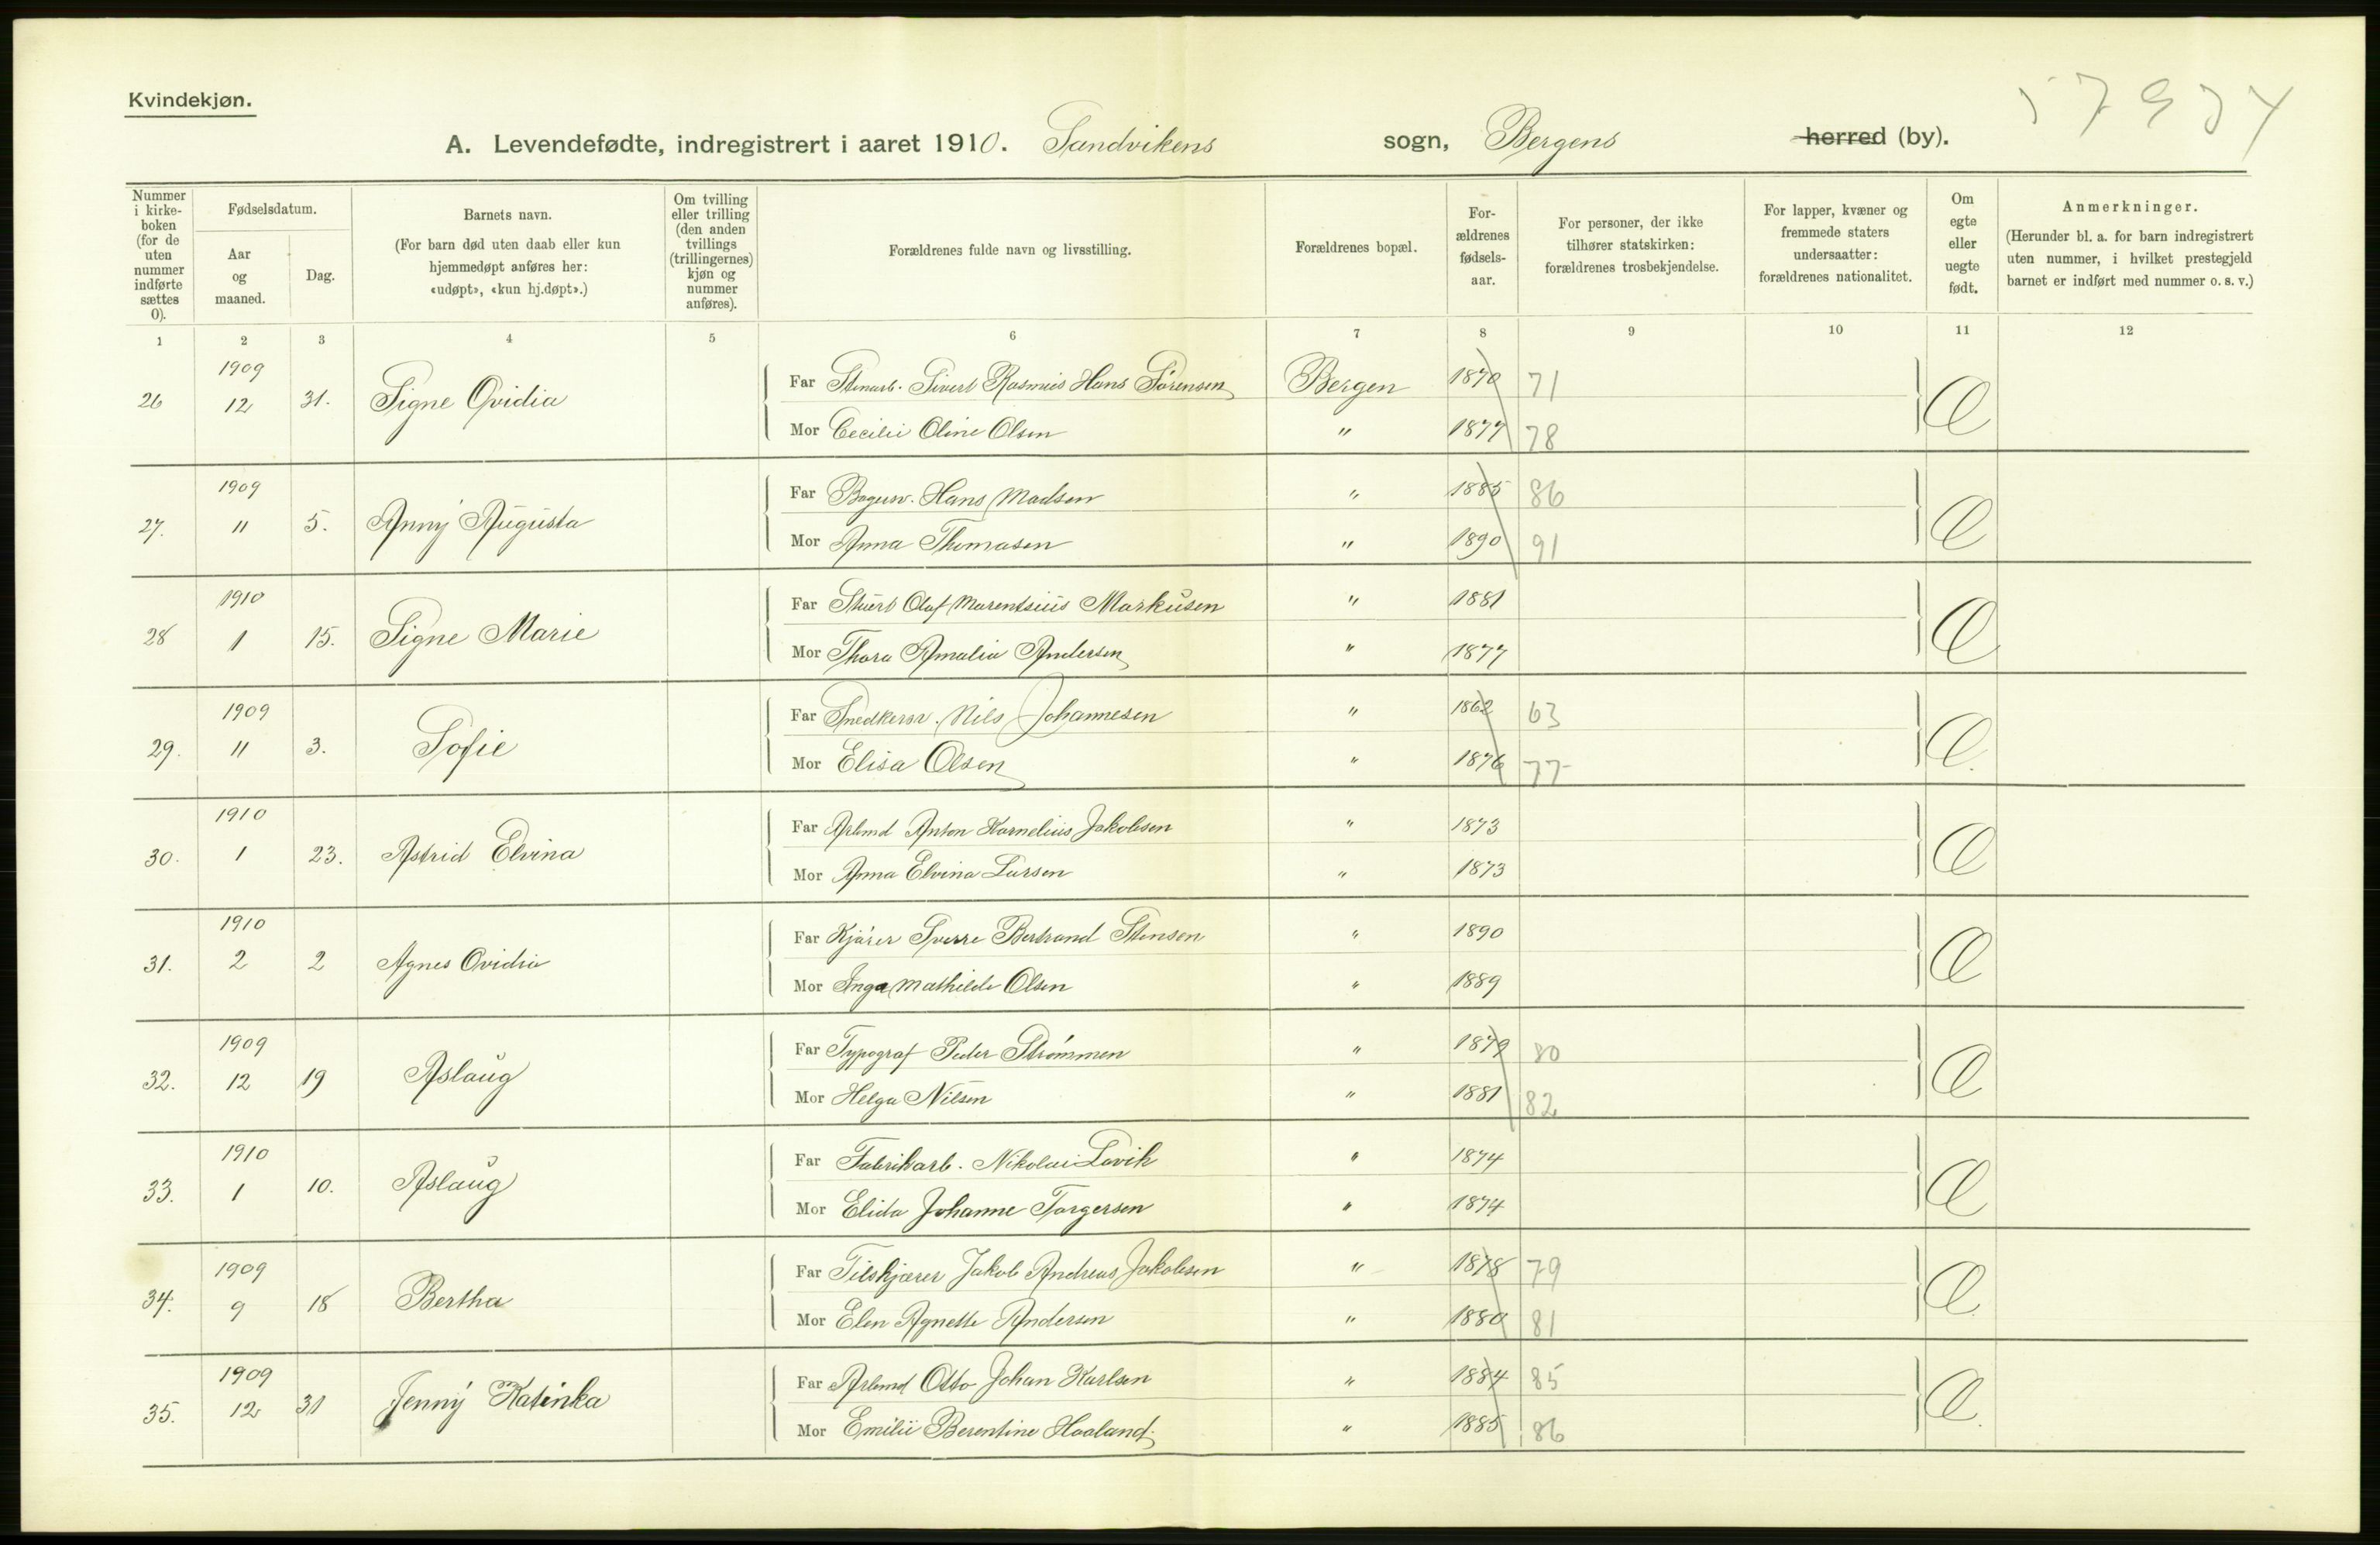 Kvindekjøn.
57974
A. Levendefødte, indregistrert i aaret 1910. Sandvikens sogn, Bergens herred (by).
Nummer i kirke-boken (for de uten nummer indførte sættes 0).
Fødselsdatum.
Aar og maaned.
Dag.
Barnets navn.
(For barn død uten daab eller kun hjemmedøpt anføres her: «udøpt», «kun hj.døpt».)
Om tvilling eller trilling (den anden tvillings (trillingernes) kjøn og nummer anføres).
Forældrenes fulde navn og livsstilling.
Forældrenes bopæl.
For-ældrenes fødsels-aar.
For personer, der ikke tilhører statskirken: forældrenes trosbekjendelse.
For lapper, kvæner og fremmede staters undersaatter: forældrenes nationalitet.
Om egte eller uegte født.
Anmerkninger.
(Herunder bl. a. for barn indregistrert uten nummer, i hvilket prestegjeld barnet er indført med nummer o. s. v.)
1 2 3 4 5 6 7 8 9 10 11 12
26 1909 12 31. Signe Ovidia
Far Stenarb. Sivert Rasmus Hans Sørensen Bergen 1870 71
Mor Cecilie Oline Olsen " 1877 78
E
27. 1909 11 5. Anny Augusta
Far Bagersv. Hans Madsen " 1885 86
Mor Anna Thomasen " 1890 91
E
28 1910 1 15. Signe Marie
Far Stuert Olaf Marentsius Markusen " 1881
Mor Thora Amalia Andersen " 1877
E
29. 1909 11 3. Sofie
Far Snedkersv. Nils Johannesen " 1862 63
Mor Elisa Olsen " 1876 77
E
30. 1910 1 23. Astrid Elvina
Far Arbmd Anton Kornelius Jakobsen " 1873
Mor Anna Elvina Larsen " 1873
E
31. 1910 2 2 Agnes Ovidia
Far Kjører Sverre Bertrand Stensen " 1890
Mor Inga Mathilde Olsen " 1889
E
32. 1909 12 19 Aslaug
Far Typograf Peder Strømmen " 1879 80
Mor Helga Nilsen " 1881 82
E
33. 1910 1 10. Aslaug
Far Fabrikarb. Nikolai Løvik " 1874
Mor Elida Johanne Torgersen " 1874
E
34. 1909 9 18 Bertha
Far Tilskjærer Jakob Andreas Jakobsen " 1878 79
Mor Elen Agnette Andersen " 1880 81
E
35. 1909 12 31 Jenny Katinka
Far Arbmd Otto Johan Karlsen " 1884 85
Mor Emilie Berentine Haaland. " 1885 86
E